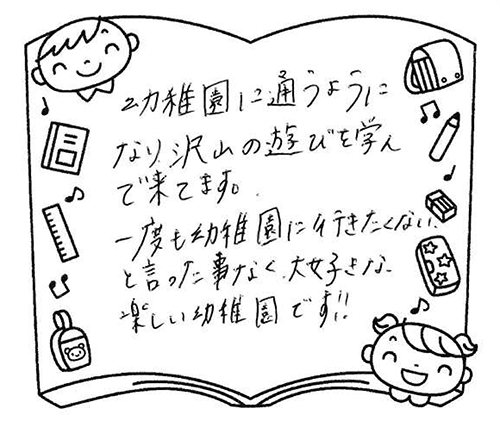 幼稚園に通うように
なり、沢山の遊びを学ん
で来てます。
一度も幼稚園に行きたくない、
と言った事なく、大好きな、
楽しい幼稚園です!!